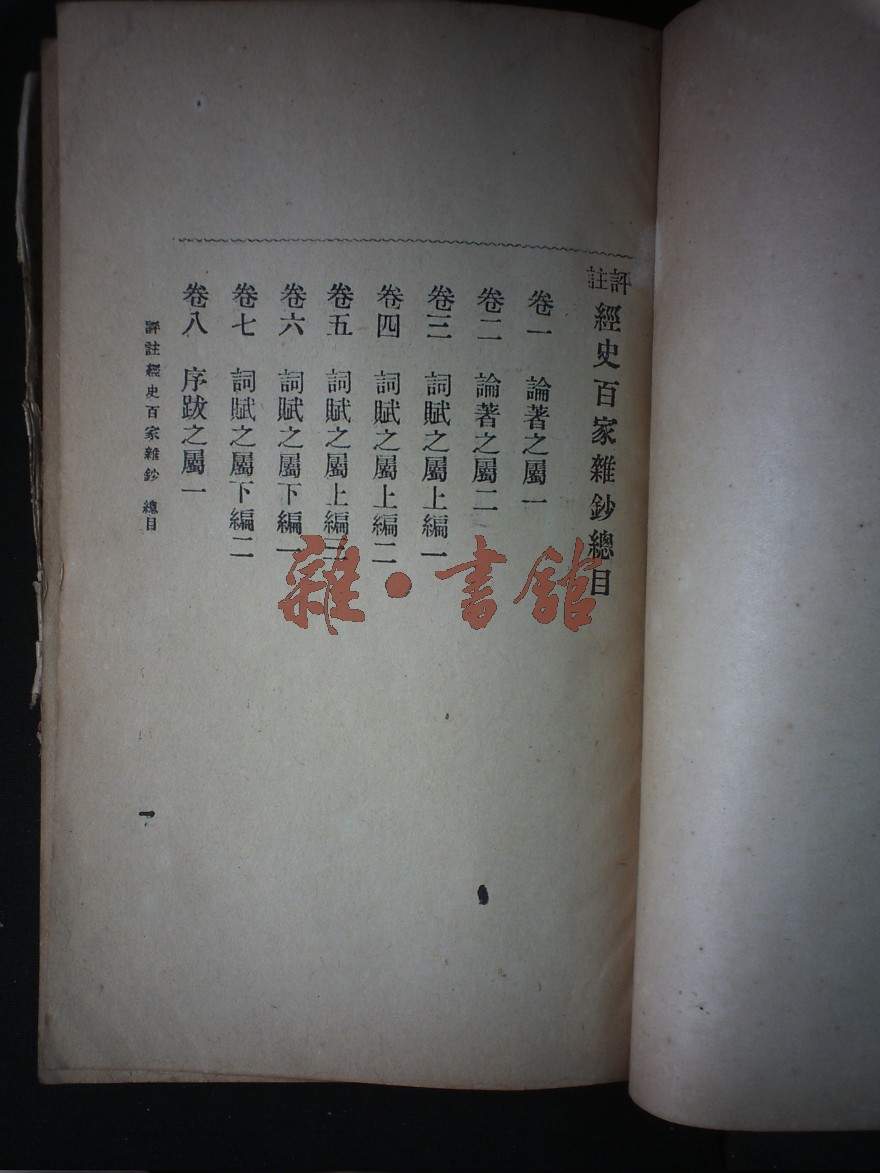 評註經史百家雜鈔總目
卷一　論著之屬一
卷二　論著之屬二
卷三　詞賦之屬上編一
卷四　詞賦之屬上編二
卷五　詞賦之屬上編三
卷六　詞賦之屬下編一
卷七　詞賦之屬下編二
卷八　序跋之屬一
評註經史百家雜鈔　總目
一
雜·書館